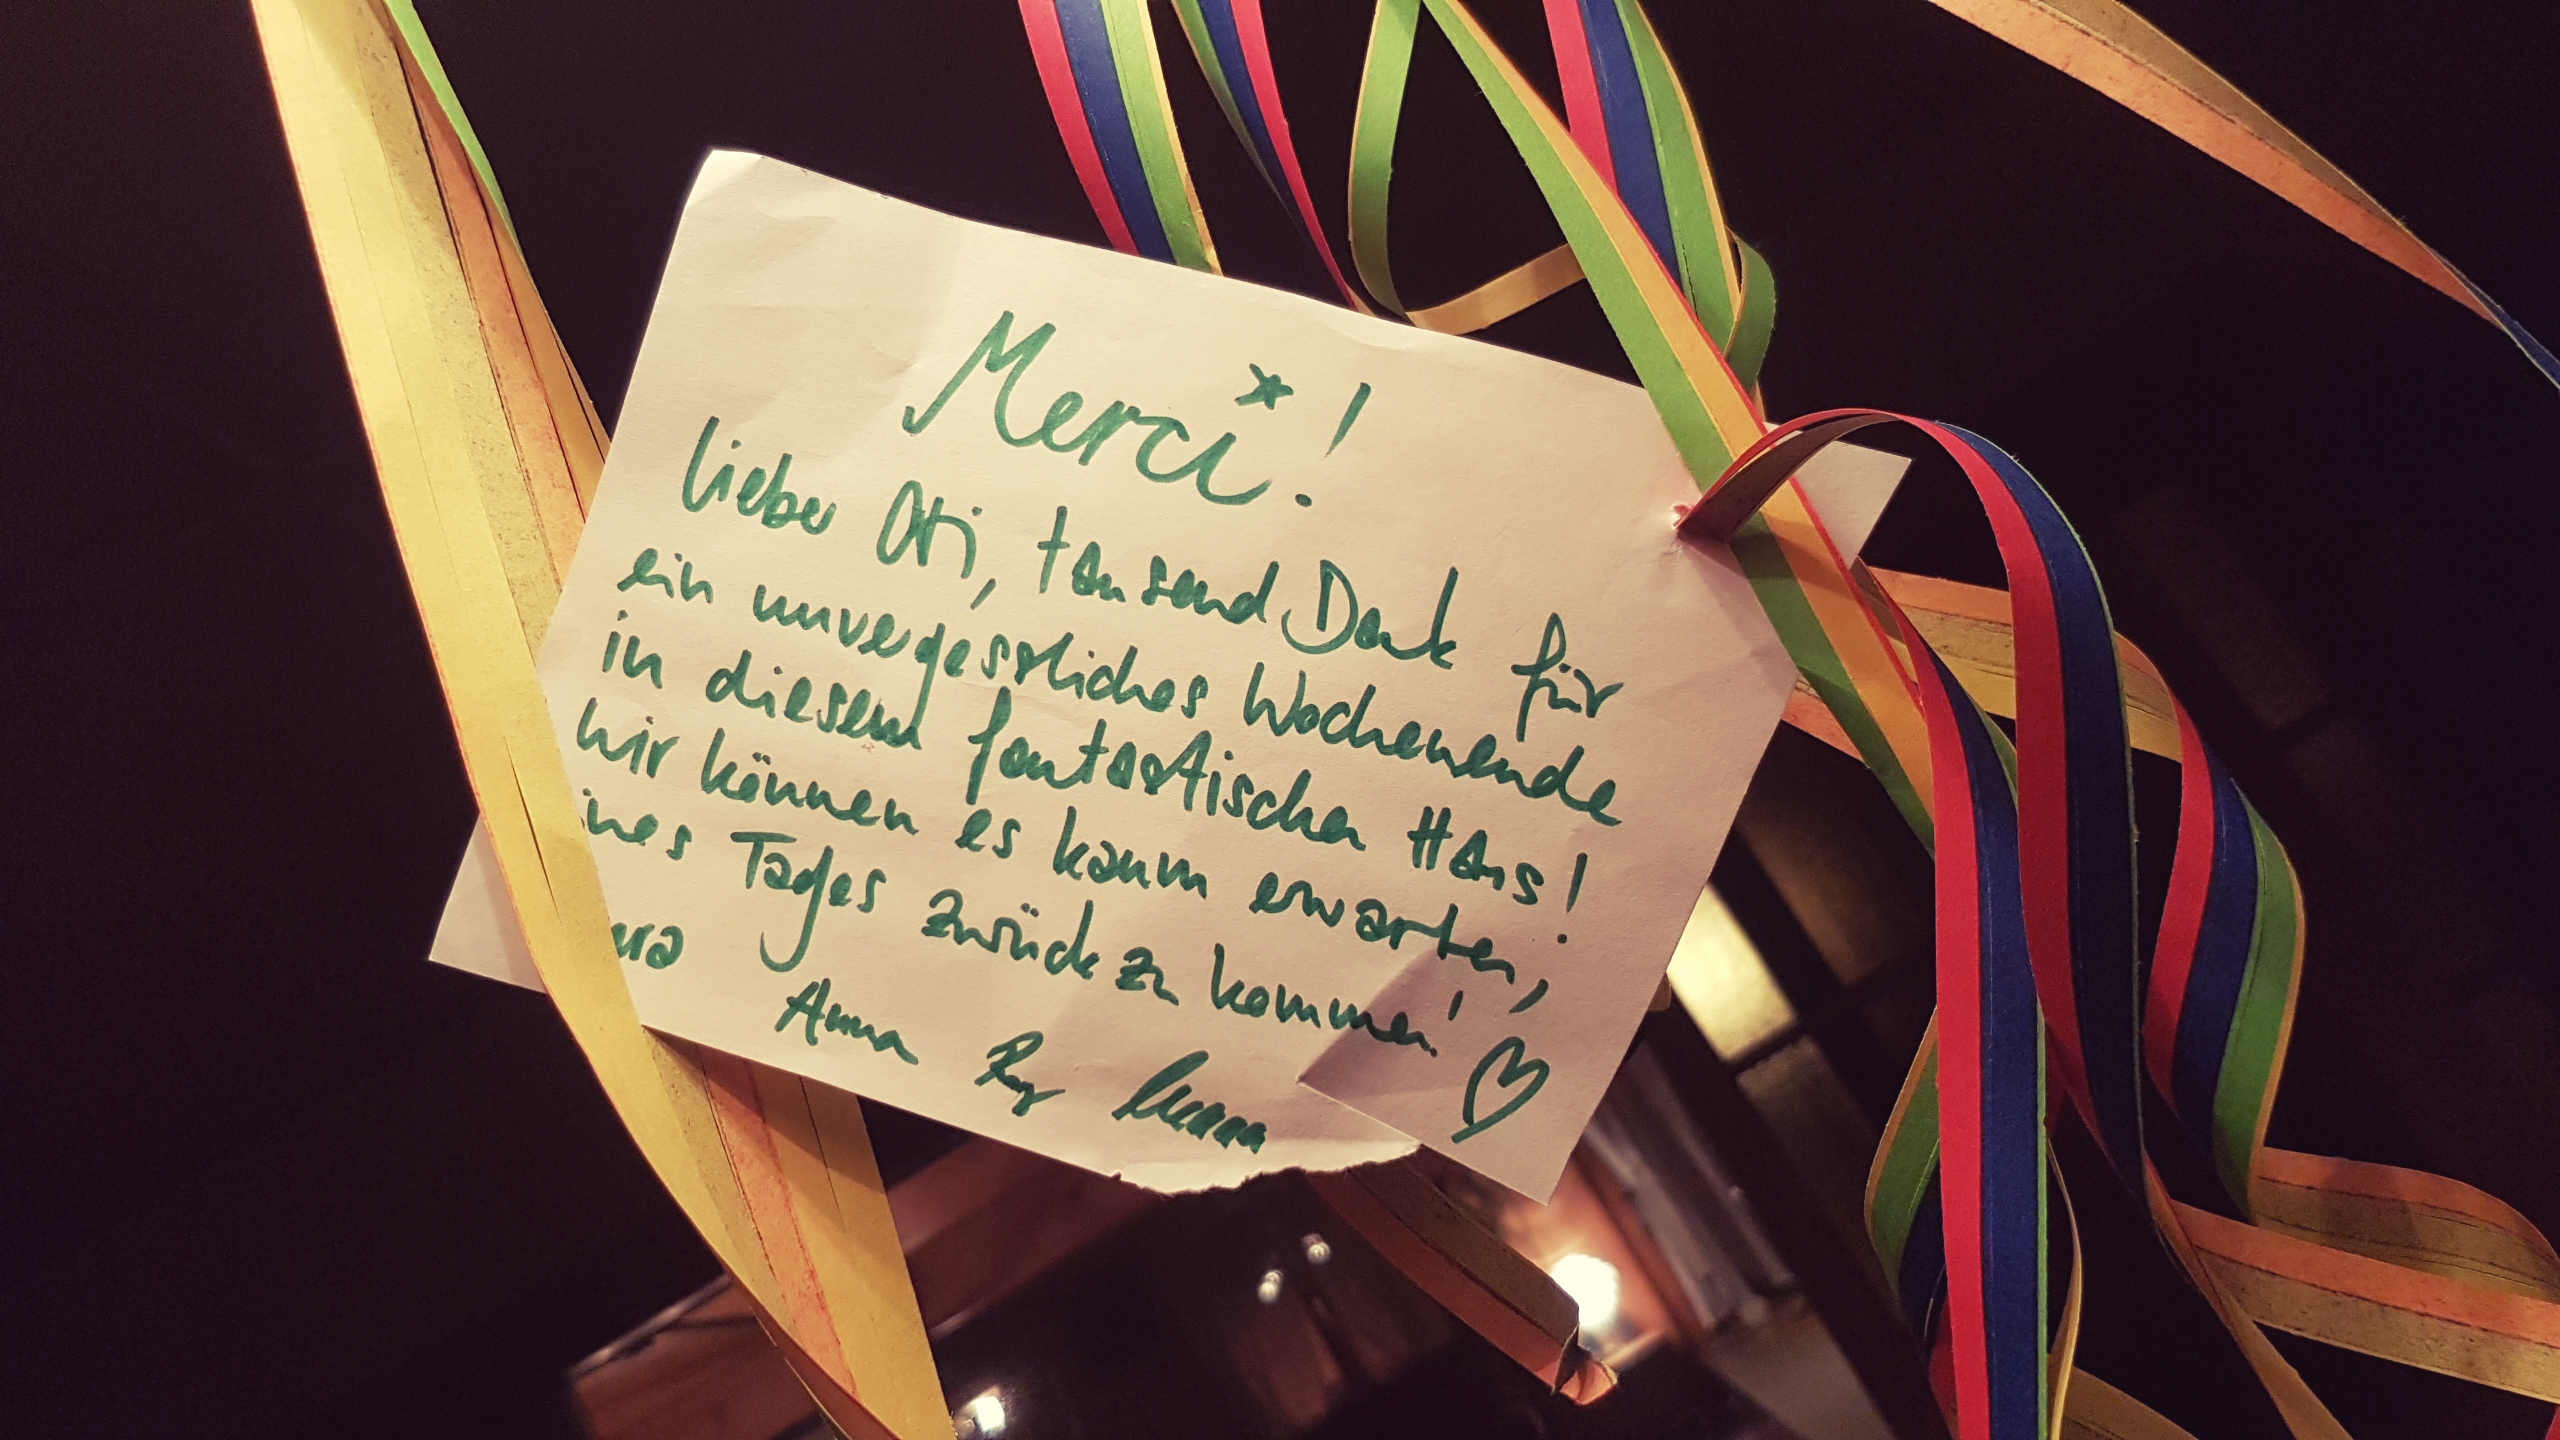 Merci!
lieber Oti, tausend Dank für
ein unvergessliches Wochenende
in diesem fantastischen Haus!
Wir können es kaum erwarten,
ines Tages zurück zu kommen!
ura Anna